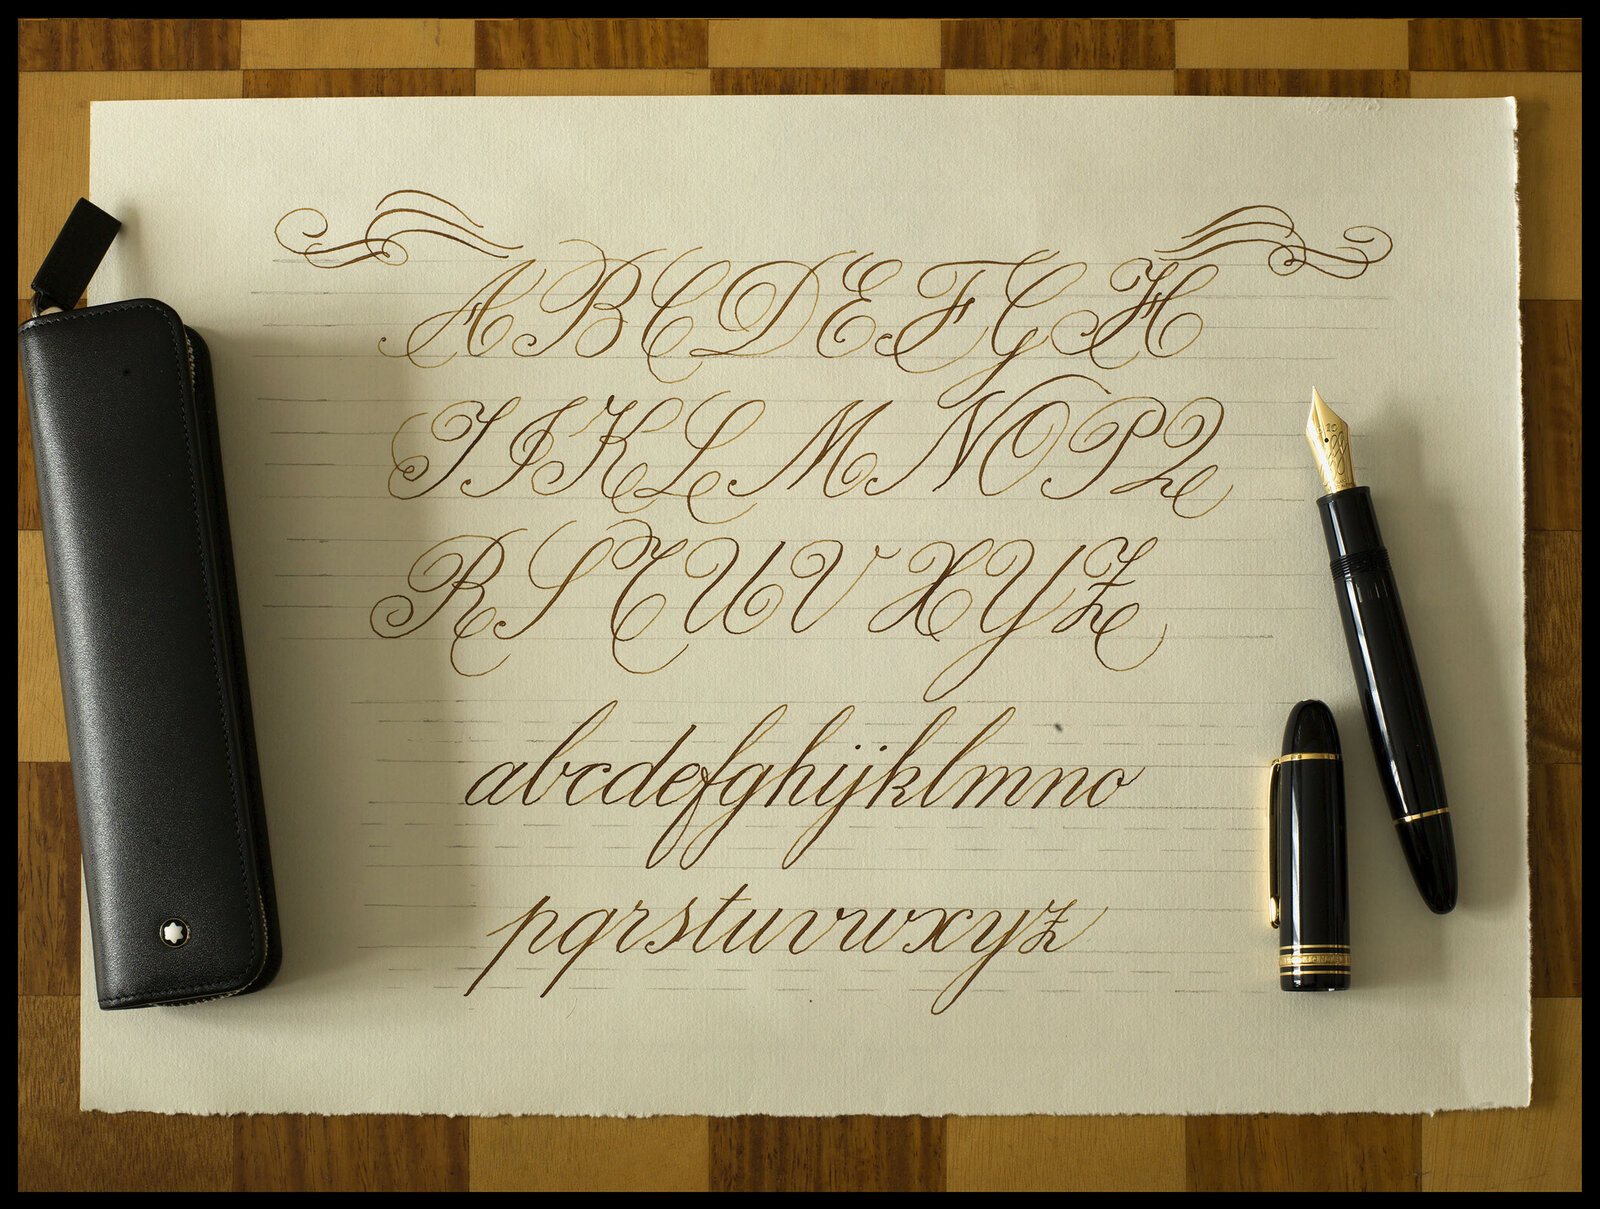 A B C D E F G H
I J K L M N O P Q
R S T U V X Y Z
abcdefghijklmno
pqrstuvwxyz